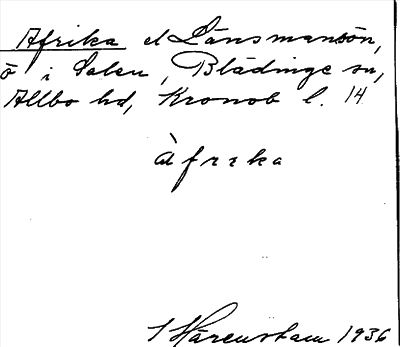 Afrika el Länsmansön,
ö i Salen, Blädinge sn,
Allbo hd, Kronob l. 14
àfrika
S Härenstam 1936